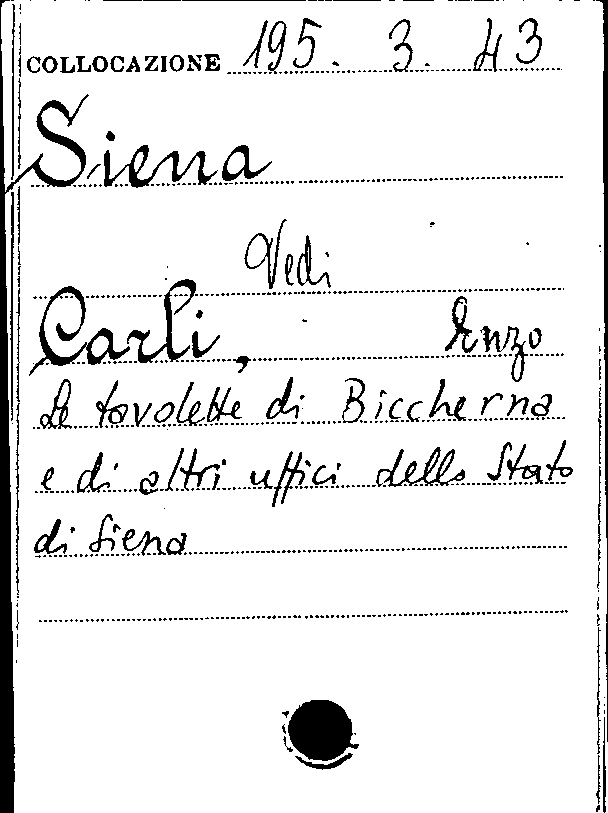 COLLOCAZIONE 195. 3. 43
Siena
Vedi
Carli, Enzo
Le tavolette di Biccherna
e di altri uffici dello Stato
di Siena